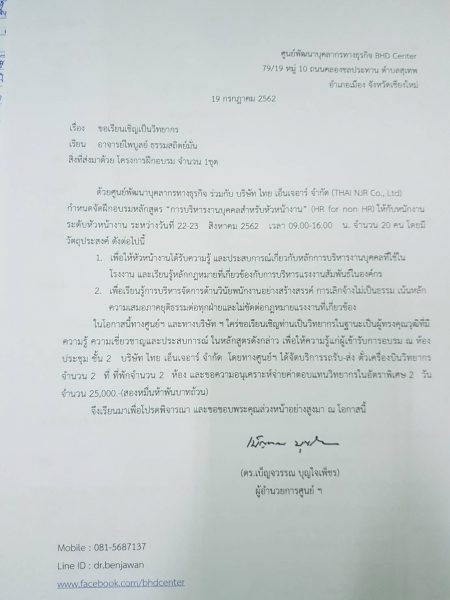 ศูนย์พัฒนาบุคลากรทางธุรกิจ BHD Center
79/19 หมู่ 10 ถนนคลองชลประทาน ตำบลสุเทพ
อำเภอเมือง จังหวัดเชียงใหม่
19 กรกฎาคม 2562
เรื่อง ขอเรียนเชิญเป็นวิทยากร
เรียน อาจารย์ไพบูลย์ ธรรมสถิตย์มั่น
สิ่งที่ส่งมาด้วย โครงการฝึกอบรม จำนวน 1ชุด
ด้วยศูนย์พัฒนาบุคลากรทางธุรกิจ ร่วมกับ บริษัท ไทย เอ็นเจอาร์ จำกัด (THAI NJR Co., Ltd)
กำหนดจัดฝึกอบรมหลักสูตร "การบริหารงานบุคคลสำหรับหัวหน้างาน" (HR for non HR) ให้กับพนักงาน
ระดับหัวหน้างาน ระหว่างวันที่ 22-23 สิงหาคม 2562 เวลา 09.00-16.00 น. จำนวน 20 คน โดยมี
วัตถุประสงค์ ดังต่อไปนี้
1. เพื่อให้หัวหน้างานได้รับความรู้ และประสบการณ์เกี่ยวกับหลักการบริหารงานบุคคลที่ใช้ใน
โรงงาน และเรียนรู้หลักกฎหมายที่เกี่ยวข้องกับการบริหารแรงงานสัมพันธ์ในองค์กร
2. เพื่อเรียนรู้การบริหารจัดการด้านวินัยพนักงานอย่างสร้างสรรค์ การเลิกจ้างไม่เป็นธรรม เน้นหลัก
ความเสมอภาคยุติธรรมต่อทุกฝ่ายและไม่ขัดต่อกฎหมายแรงงานที่เกี่ยวข้อง
ในโอกาสนี้ทางศูนย์ฯ และทางบริษัท ฯ ใคร่ขอเรียนเชิญท่านเป็นวิทยากรในฐานะเป็นผู้ทรงคุณวุฒิที่มี
ความรู้ ความเชี่ยวชาญและประสบการณ์ ในหลักสูตรดังกล่าว เพื่อให้ความรู้แก่ผู้เข้ารับการอบรม ณ ห้อง
ประชุม ชั้น 2 บริษัท ไทย เอ็นเจอาร์ จำกัด โดยทางศูนย์ฯ ได้จัดบริการรถรับ-ส่ง ตั๋วเครื่องบินวิทยากร
จำนวน 2 ที่ ที่พักจำนวน 2 ห้อง และขอความอนุเคราะห์จ่ายค่าตอบแทนวิทยากรในอัตราพิเศษ 2 วัน
จำนวน 25,000.-(สองหมื่นห้าพันบาทถ้วน)
จึงเรียนมาเพื่อโปรดพิจารณา และขอขอบพระคุณล่วงหน้าอย่างสูงมา ณ โอกาสนี้
(ดร.เบ็ญจวรรณ บุญใจเพ็ชร)
ผู้อำนวยการศูนย์ ฯ
Mobile : 081-5687137
Line ID : dr.benjawan
www.facebook.com/bhdcenter